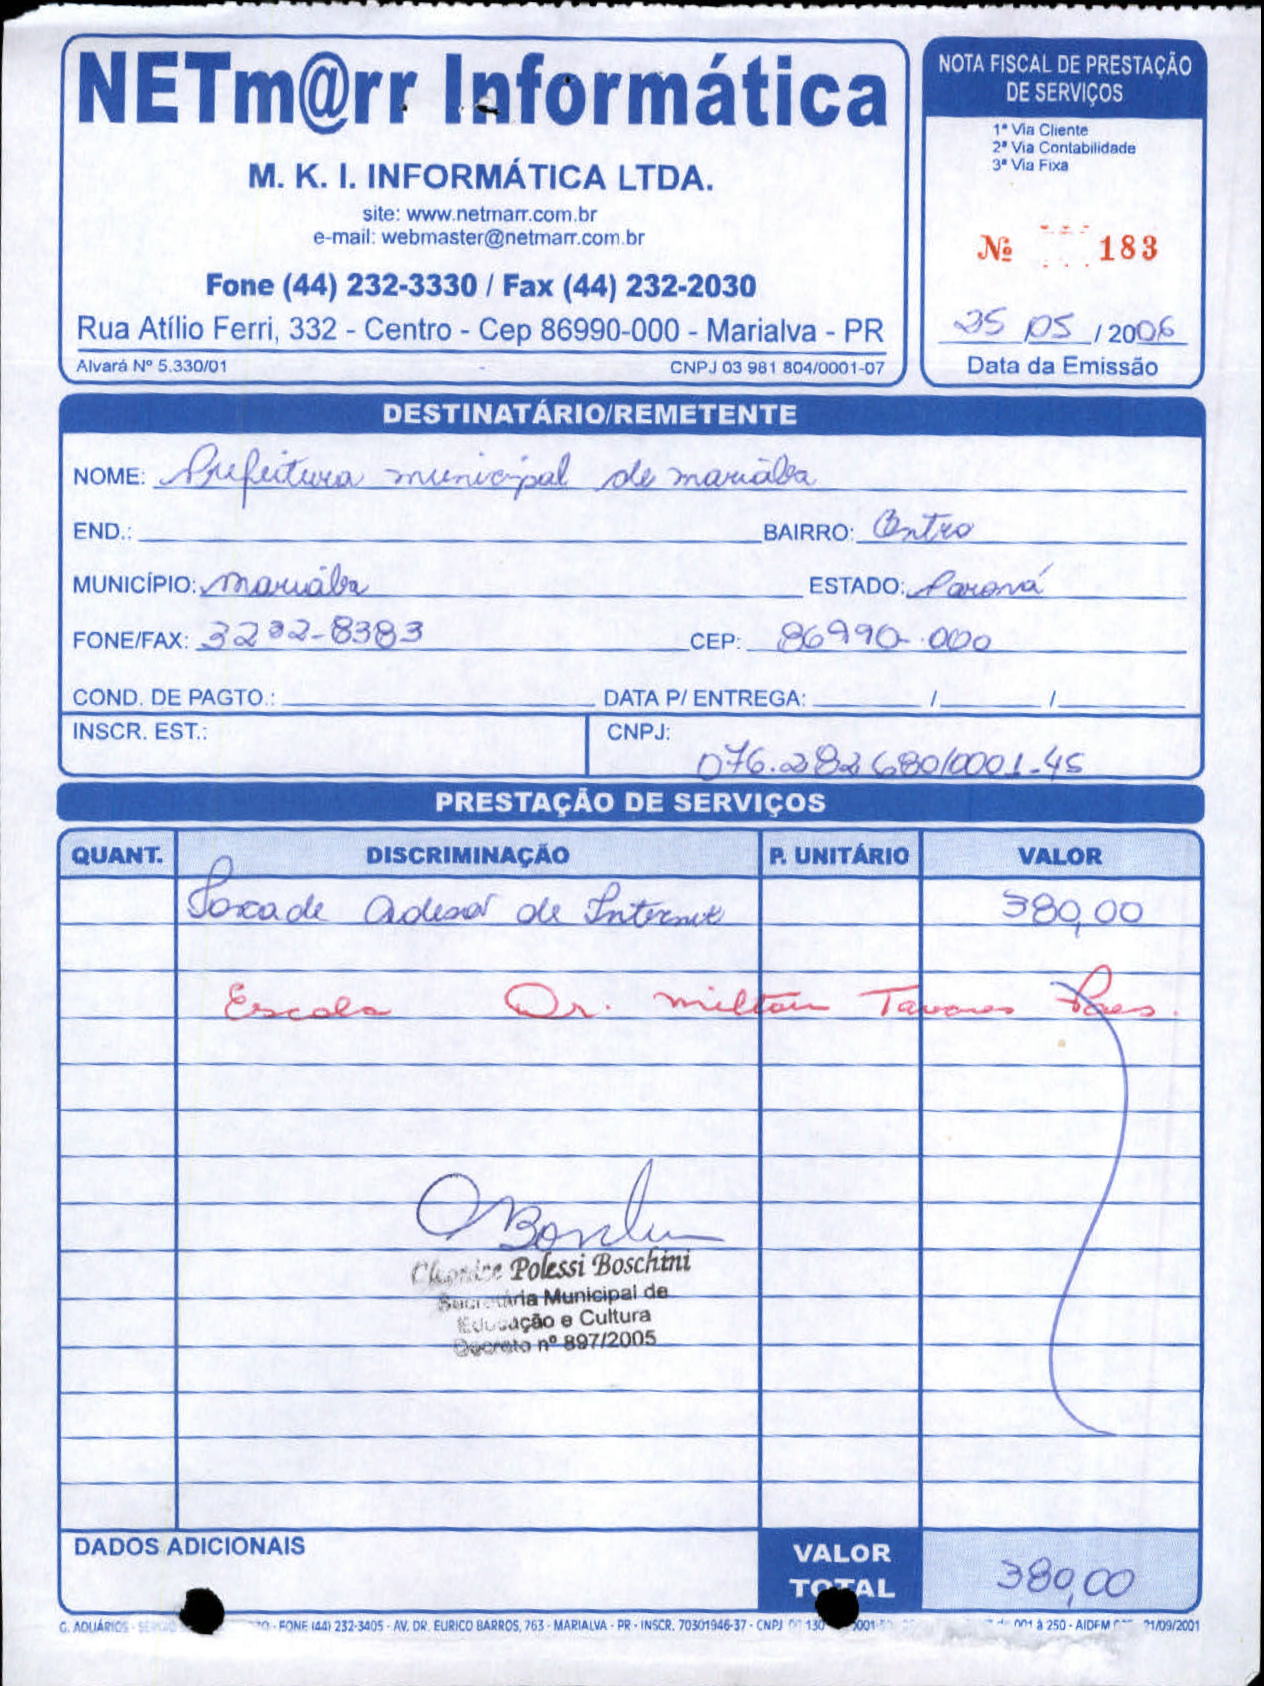 NETm@rr Informática
M. K. I. INFORMÁTICA LTDA.
site: www.netmarr.com.br
e-mail: webmaster@netmarr.com.br
Fone (44) 232-3330 / Fax (44) 232-2030
Rua Atílio Ferri, 332 - Centro - Cep 86990-000 - Marialva - PR
Alvará Nº 5.330/01 CNPJ 03 981 804/0001-07
NOTA FISCAL DE PRESTAÇÃO
DE SERVIÇOS
1ª Via Cliente
2ª Via Contabilidade
3ª Via Fixa
Nº 183
25 05 / 2006
Data da Emissão
DESTINATÁRIO/REMETENTE
NOME: Prefeitura municipal de marialva
END.: BAIRRO: Centro
MUNICÍPIO: marialva ESTADO: Paraná
FONE/FAX: 3232-8383 CEP: 86990-000
COND. DE PAGTO.: DATA P/ ENTREGA: / /
INSCR. EST.: CNPJ:
076.282680/0001-45
PRESTAÇÃO DE SERVIÇOS
QUANT. DISCRIMINAÇÃO P. UNITÁRIO VALOR
Taxa de Adesão de Internet 380,00
Escola Dr. Milton Tavares Paes.
Polessi Boschini
Secretária Municipal de
Educação e Cultura
Decreto nº 897/2005
DADOS ADICIONAIS
VALOR
TOTAL 380,00
G. AQUÁRIOS - FONE (44) 232-3405 - AV. DR. EURICO BARROS, 763 - MARIALVA - PR - INSCR. 70301946-37 - CNPJ 130 0001 001 à 250 - AIDFM 21/09/2001